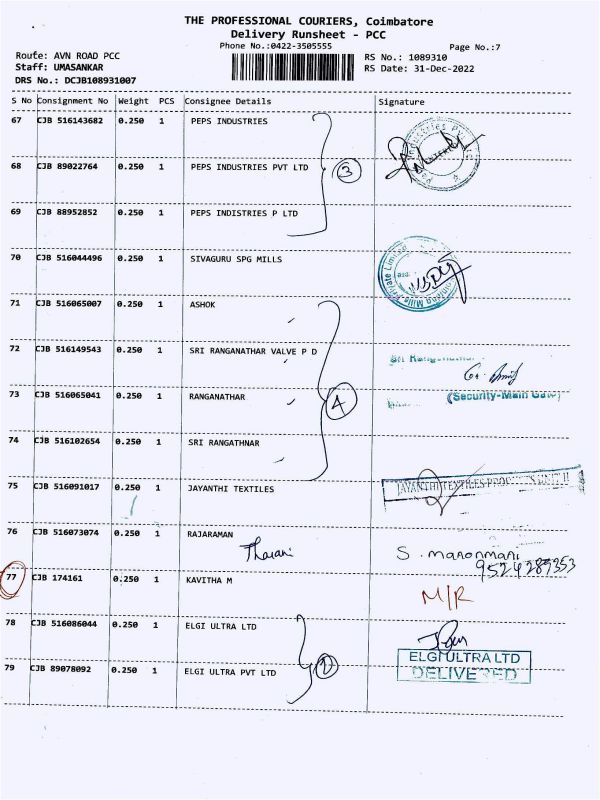 THE PROFESSIONAL COURIERS, Coimbatore
Delivery Runsheet - PCC
Phone No.:0422-3505555
Page No.:7
Route: AVN ROAD PCC
RS No.: 1089310
Staff: UMASANKAR
RS Date: 31-Dec-2022
DRS No.: DCJB108931007
S No Consignment No Weight PCS Consignee Details Signature
67 CJB 516143682 0.250 1 PEPS INDUSTRIES
68 CJB 89022764 0.250 1 PEPS INDUSTRIES PVT LTD
3
69 CJB 88952852 0.250 1 PEPS INDISTRIES P LTD
70 CJB 516044496 0.250 1 SIVAGURU SPG MILLS
71 CJB 516065007 0.250 1 ASHOK
72 CJB 516149543 0.250 1 SRI RANGANATHAR VALVE P D
73 CJB 516065041 0.250 1 RANGANATHAR
(Security-Main Gate)
4
74 CJB 516102654 0.250 1 SRI RANGATHNAR
75 CJB 516091017 0.250 1 JAYANTHI TEXTILES
JAYANTHI TEXTILES PRODUCTS UNIT II
76 CJB 516073074 0.250 1 RAJARAMAN
Tharani
S. manonmani
9524289353
77 CJB 174161 0.250 1 KAVITHA M
M/R
78 CJB 516086044 0.250 1 ELGI ULTRA LTD
2
ELGI ULTRA LTD
DELIVERED
79 CJB 89078092 0.250 1 ELGI ULTRA PVT LTD